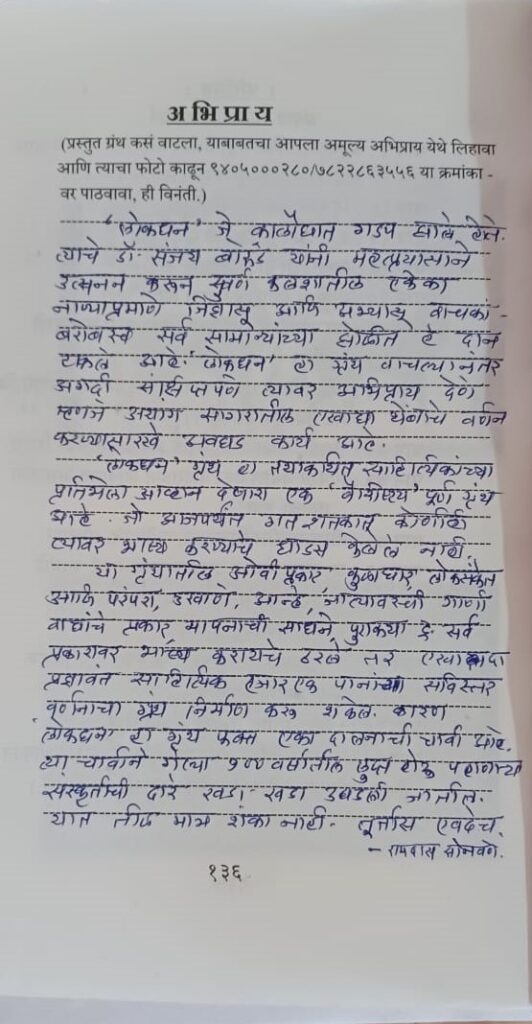 अभिप्राय
(प्रस्तुत ग्रंथ कसं वाटला, याबाबतचा आपला अमूल्य अभिप्राय येथे लिहावा
आणि त्याचा फोटो काढून ९४०५०००२८०/७८२२८६३५५६ या क्रमांका -
वर पाठवावा, ही विनंती.)
'लोकधन' जे काळौघात गडप झाले होते.
त्याचे डॉ. संजय बोरुडे यांनी महत्प्रयासाने
उत्खनन करून सुवर्ण कलशातील एकेका
नाण्याप्रमाणे जिज्ञासू आणि अभ्यासू वाचकां-
बरोबरच सर्व सामान्यांच्या झोळीत हे दान
टाकले आहे. 'लोकधन' हा ग्रंथ वाचल्यानंतर
अगदी संक्षिप्तपणे त्यावर अभिप्राय देणे
म्हणजे अथांग सागरातील एखाद्या थेंबाचे वर्णन
करण्यासारखे अवघड कार्य आहे.
'लोकधन' ग्रंथ हा तथाकथित साहित्यिकांच्या
प्रतिभेला आव्हान देणारा एक 'वैशिष्ट्य' पूर्ण ग्रंथ
आहे. जो आजपर्यंत गत शतकात कोणीही
त्यावर भाष्य करण्याचे धाडस केलेले नाही.
या ग्रंथातील ओवी प्रकार, कुळाचार, लोकसंकेत
आणि परंपरा, उखाणे, आन्हे, जात्यावरची गाणी
वाद्यांचे प्रकार मापनाची साधने, पुराकथा इ. सर्व
प्रकारावर भाष्य करायचे ठरले तर एखादा
प्रज्ञावंत साहित्यिक हजार एक पानांचा सविस्तर
वर्णनाचा ग्रंथ निर्माण करू शकेल. कारण
लोकधन हा ग्रंथ फक्त एका दालनाची चावी आहे.
त्या चावीने गेल्या १०० वर्षातील लुप्त होऊ पहाणाऱ्या
संस्कृतीची दारे खडा खडा उघडली जातील.
यात तीळ मात्र शंका नाही. तूर्तास एवढेच.
- रामदास सोनवणे.
१३६